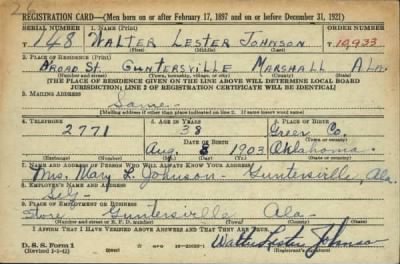 26
REGISTRATION CARD—(Men born on or after February 17, 1897 and on or before December 31, 1921)
SERIAL NUMBER 1. NAME (Print) ORDER NUMBER
T 148 WALTER LESTER JOHNSON 10,933
(First) (Middle) (Last)
2. PLACE OF RESIDENCE (Print)
BROAD St. GUNTERSVILLE MARSHALL ALA.
(Number and street) (Town, township, village, or city) (County) (State)
[THE PLACE OF RESIDENCE GIVEN ON THE LINE ABOVE WILL DETERMINE LOCAL BOARD
JURISDICTION; LINE 2 OF REGISTRATION CERTIFICATE WILL BE IDENTICAL]
3. MAILING ADDRESS
Same
[Mailing address if other than place indicated on line 2. If same insert word same]
4. TELEPHONE 5. AGE IN YEARS 6. PLACE OF BIRTH
2771 38 Greer Co.
DATE OF BIRTH (Town or county)
Aug. 8 1903 Oklahoma
(Exchange) (Number) (Mo.) (Day) (Yr.) (State or country)
7. NAME AND ADDRESS OF PERSON WHO WILL ALWAYS KNOW YOUR ADDRESS
Mrs. Mary L. Johnson - Guntersville, Ala.
8. EMPLOYER'S NAME AND ADDRESS
Self
9. PLACE OF EMPLOYMENT OR BUSINESS
Store Guntersville Ala
(Number and street or R. F. D. number) (Town) (County) (State)
I AFFIRM THAT I HAVE VERIFIED ABOVE ANSWERS AND THAT THEY ARE TRUE.
D. S. S. Form 1 Walter Lester Johnson
(Revised 1-1-42) (over) (Registrant's signature)